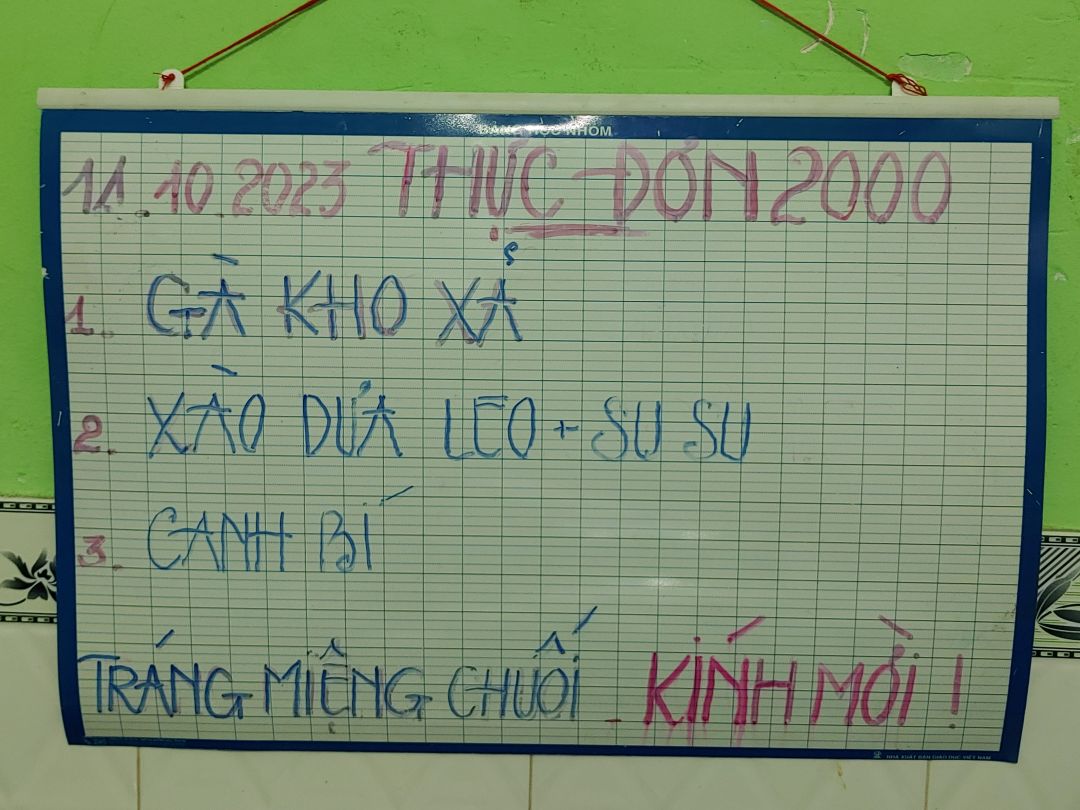 BẢNG HỌC NHÓM
11.10.2023 THỰC ĐƠN 2000
1. GÀ KHO XẢ
2. XÀO DƯA LEO + SU SU
3. CANH BÍ
TRÁNG MIỆNG CHUỐI _ KÍNH MỜI !
NHÀ XUẤT BẢN GIÁO DỤC VIỆT NAM